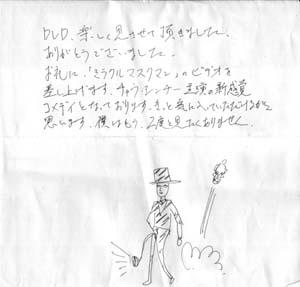 DVD、楽しく見させて頂きました。
ありがとうございました。
お礼に、「ミラクルマスクマン」のビデオを
差し上げます。チャウ・シンチー主演の新感覚
コメディとなっております。きっと気に入っていただけるかと
思います。僕はもう、2度と見たくありません。